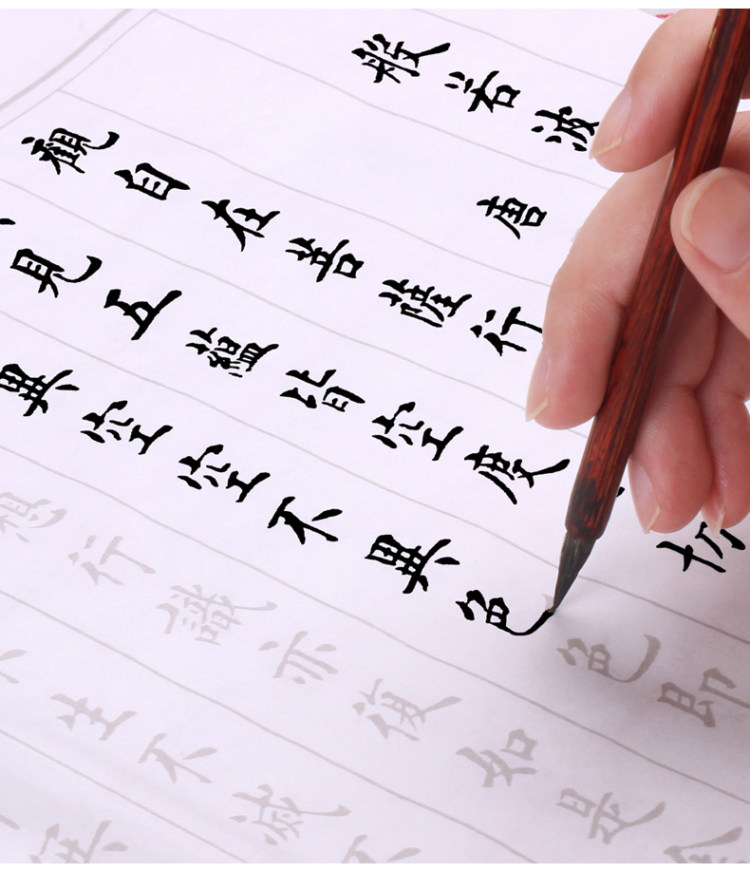 般若波
唐
觀自在菩薩行
見五蘊皆空度切
異空空不異色色即
想行識亦復如是
生不滅